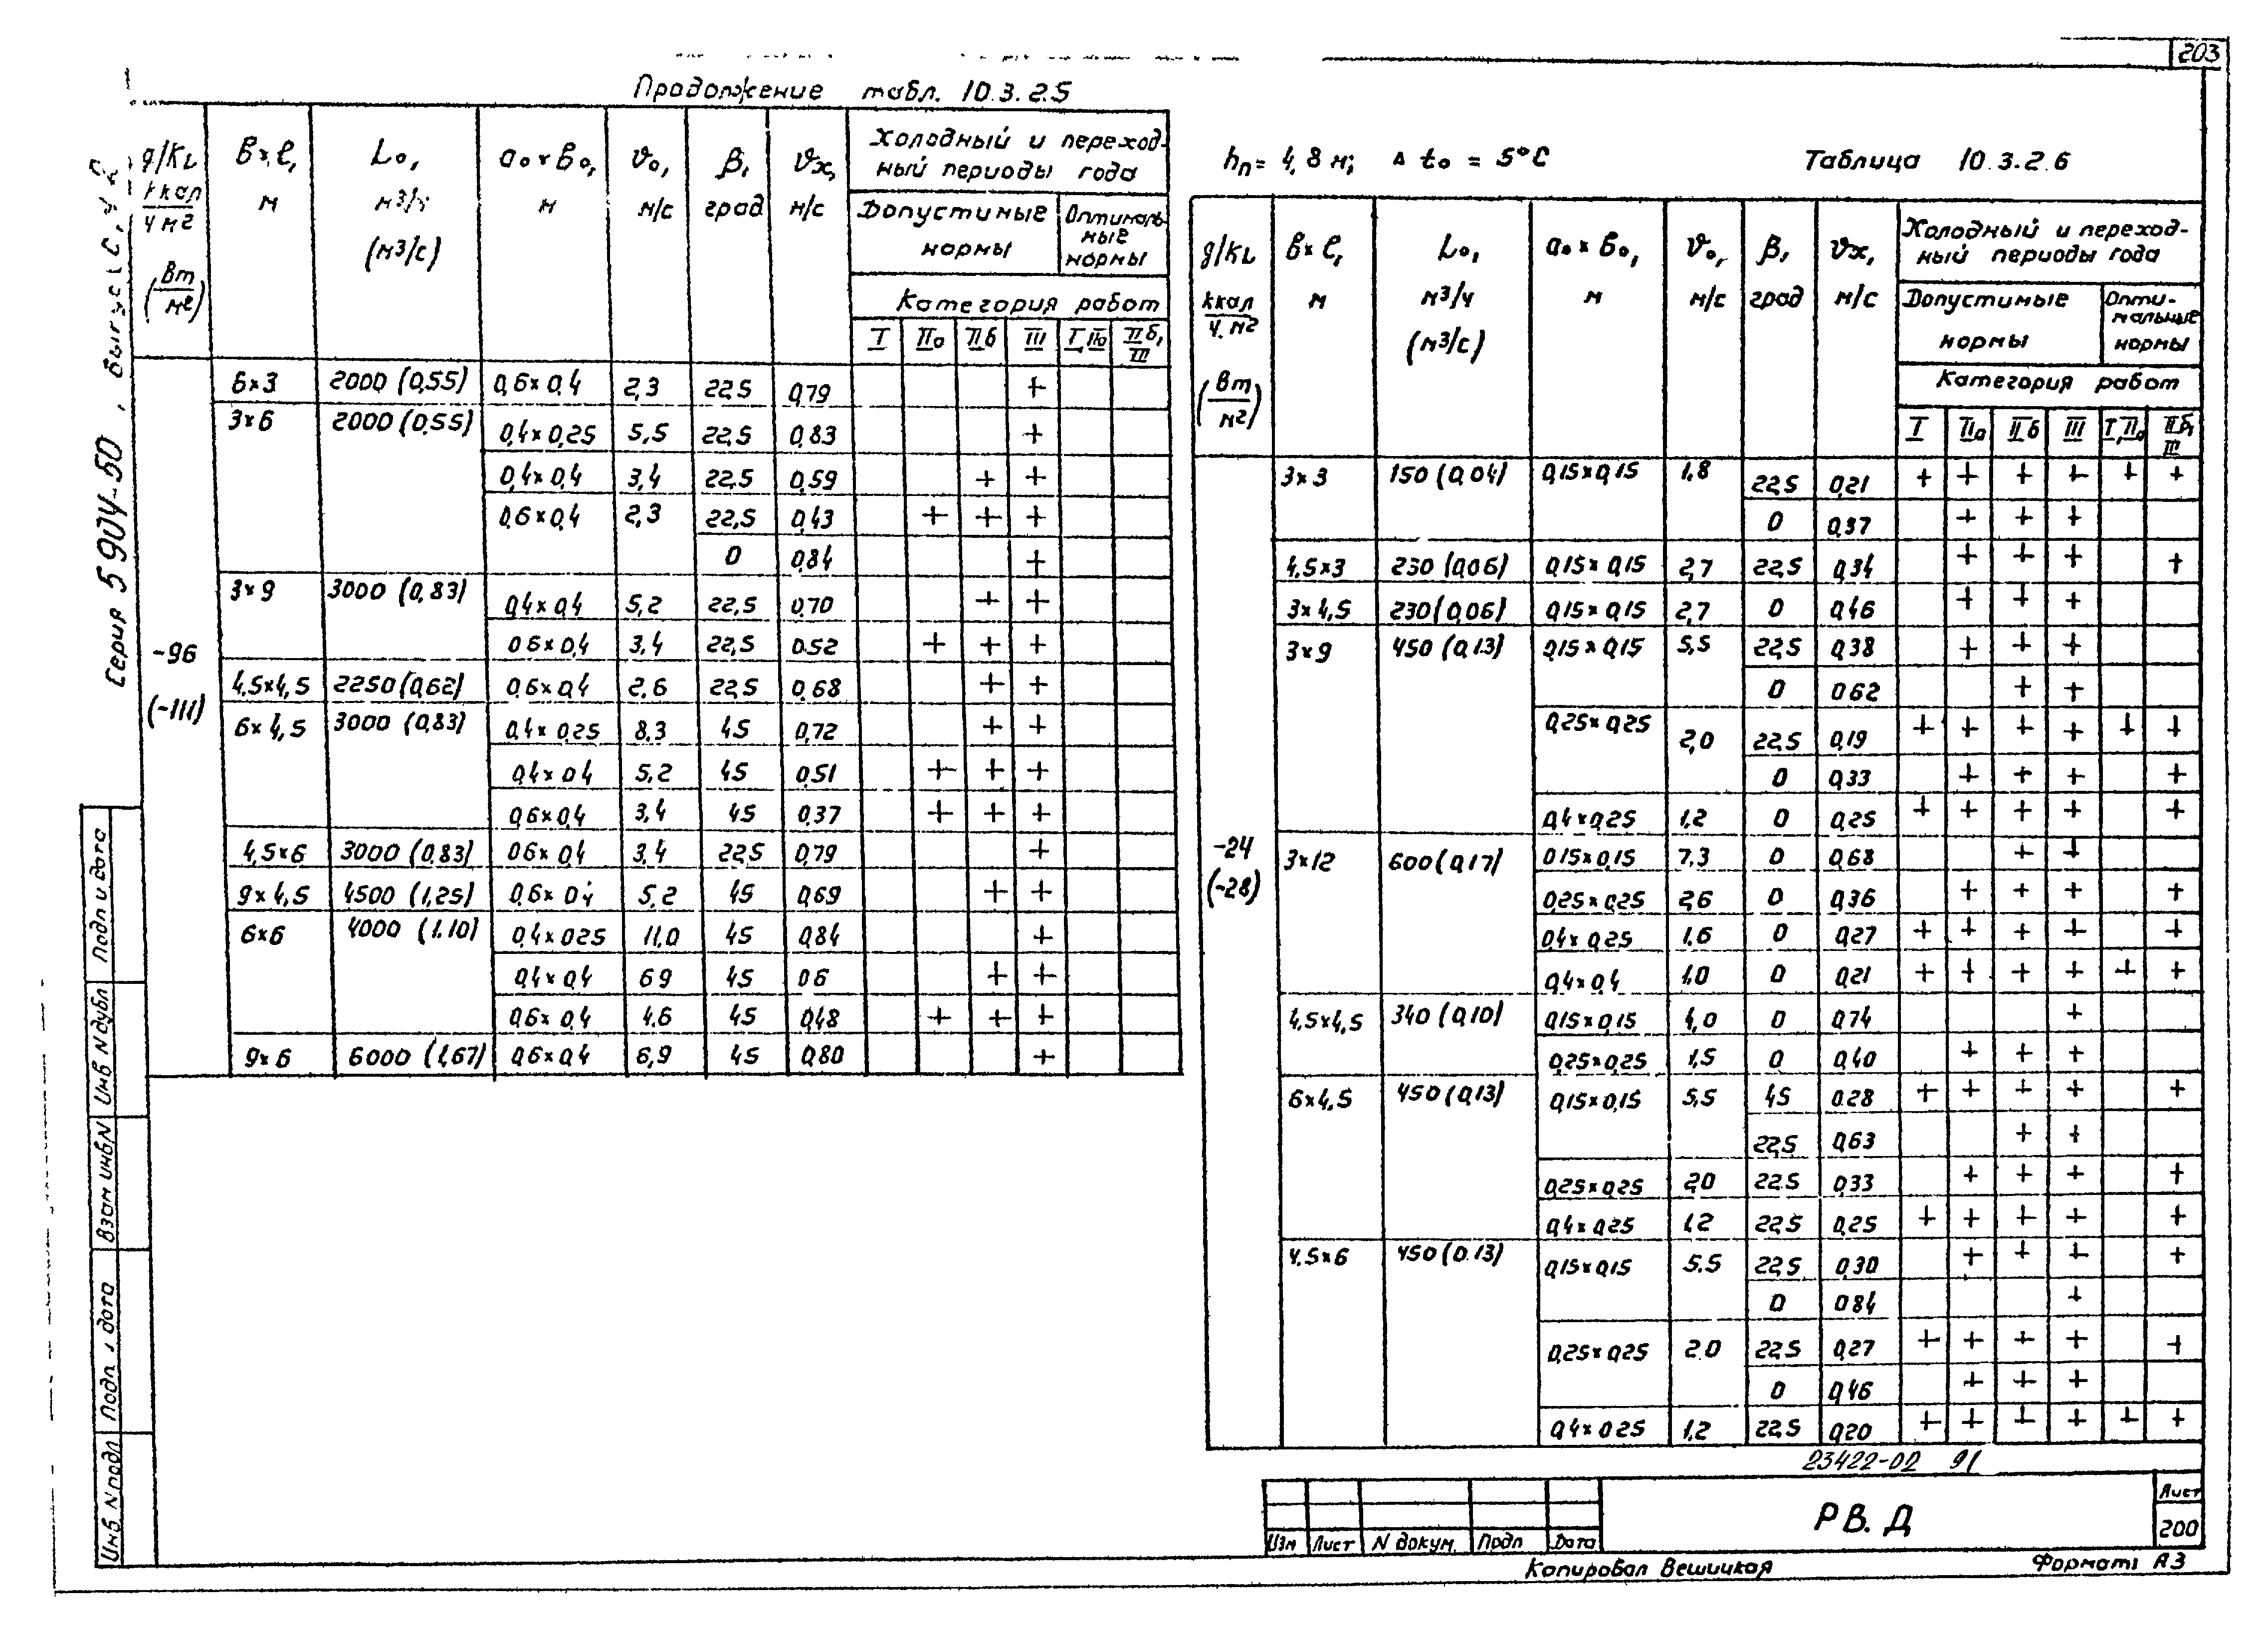 203
Продолжение табл. 10.3.2.5
Серия 5.904-50, выпуск
g/KL ккал/ч м2 (Вт/м2) | в×ℓ, м | Lо, м3/ч (м3/с) | ао×во, м | vо, м/с | β, град | vх, м/с | Холодный и переходный периоды года
Допустимые нормы | Оптимальные нормы
Категория работ
I | IIа | IIб | III | I, IIа | IIб, III
-96
(-111)
6×3 | 2000 (0,55) | 0,6×0,4 | 2,3 | 22,5 | 0,79 | | | | + | |
3×6 | 2000 (0,55) | 0,4×0,25 | 5,5 | 22,5 | 0,83 | | | | + | |
0,4×0,4 | 3,4 | 22,5 | 0,59 | | | + | + | |
0,6×0,4 | 2,3 | 22,5 | 0,43 | | + | + | + | |
0 | 0,84 | | | | + | |
3×9 | 3000 (0,83) | 0,4×0,4 | 5,2 | 22,5 | 0,70 | | | + | + | |
0,6×0,4 | 3,4 | 22,5 | 0.52 | | + | + | + | |
4,5×4,5 | 2250 (0,62) | 0,6×0,4 | 2,6 | 22,5 | 0,68 | | | + | + | |
6×4,5 | 3000 (0,83) | 0,4×0,25 | 8,3 | 45 | 0,72 | | | + | + | |
0,4×0,4 | 5,2 | 45 | 0,51 | | + | + | + | |
0,6×0,4 | 3,4 | 45 | 0,37 | | + | + | + | |
4,5×6 | 3000 (0,83) | 0,6×0,4 | 3,4 | 22,5 | 0,79 | | | | + | |
9×4,5 | 4500 (1,25) | 0,6×0,4 | 5,2 | 45 | 0,69 | | | + | + | |
6×6 | 4000 (1,10) | 0,4×0,25 | 11,0 | 45 | 0,84 | | | | + | |
0,4×0,4 | 6,9 | 45 | 0,6 | | | + | + | |
0,6×0,4 | 4,6 | 45 | 0,48 | | + | + | + | |
9×6 | 6000 (1,67) | 0,6×0,4 | 6,9 | 45 | 0,80 | | | | + | |
hп = 4,8 м; Δtо = 5°С Таблица 10.3.2.6
g/KL ккал/ч.м2 (Вт/м2) | в×ℓ, м | Lо, м3/ч (м3/с) | ао×бо, м | vо, м/с | β, град | vх, м/с | Холодный и переходный периоды года
Допустимые нормы | Оптимальные нормы
Категория работ
I | IIа | IIб | III | I, IIа | IIб, III
-24
(-28)
3×3 | 150 (0,04) | 0,15×0,15 | 1,8 | 22,5 | 0,21 | + | + | + | + | + | +
0 | 0,37 | | + | + | + | |
4,5×3 | 230 (0,06) | 0,15×0,15 | 2,7 | 22,5 | 0,34 | | + | + | + | | +
3×4,5 | 230 (0,06) | 0,15×0,15 | 2,7 | 0 | 0,46 | | + | + | + | |
3×9 | 450 (0,13) | 0,15×0,15 | 5,5 | 22,5 | 0,38 | | + | + | + | |
0 | 0,62 | | | + | + | |
0,25×0,25 | 2,0 | 22,5 | 0,19 | + | + | + | + | + | +
0 | 0,33 | | + | + | + | | +
0,4×0,25 | 1,2 | 0 | 0,25 | + | + | + | + | | +
3×12 | 600 (0,17) | 0,15×0,15 | 7,3 | 0 | 0,68 | | | + | + | |
0,25×0,25 | 2,6 | 0 | 0,36 | | + | + | + | | +
0,4×0,25 | 1,6 | 0 | 0,27 | + | + | + | + | | +
0,4×0,4 | 1,0 | 0 | 0,21 | + | + | + | + | + | +
4,5×4,5 | 340 (0,10) | 0,15×0,15 | 4,0 | 0 | 0,74 | | | | + | |
0,25×0,25 | 1,5 | 0 | 0,40 | | + | + | + | |
6×4,5 | 450 (0,13) | 0,15×0,15 | 5,5 | 45 | 0,28 | + | + | + | + | | +
22,5 | 0,63 | | | + | + | |
0,25×0,25 | 2,0 | 22,5 | 0,33 | | + | + | + | | +
0,4×0,25 | 1,2 | 22,5 | 0,25 | + | + | + | + | | +
4,5×6 | 450 (0.13) | 0,15×0,15 | 5,5 | 22,5 | 0,30 | | + | + | + | | +
0 | 0,84 | | | | + | |
0,25×0,25 | 2,0 | 22,5 | 0,27 | + | + | + | + | | +
0 | 0,46 | | + | + | + | |
0,4×0,25 | 1,2 | 22,5 | 0,20 | + | + | + | + | + | +
23422-02 91
РВ.Д
Лист
200
Изм Лист N докум. Подп Дата
Копировал Вешицкая Формат А3
Инв N подл
Подп и дата
Взам инв N
Инв N дубл
Подп и дата